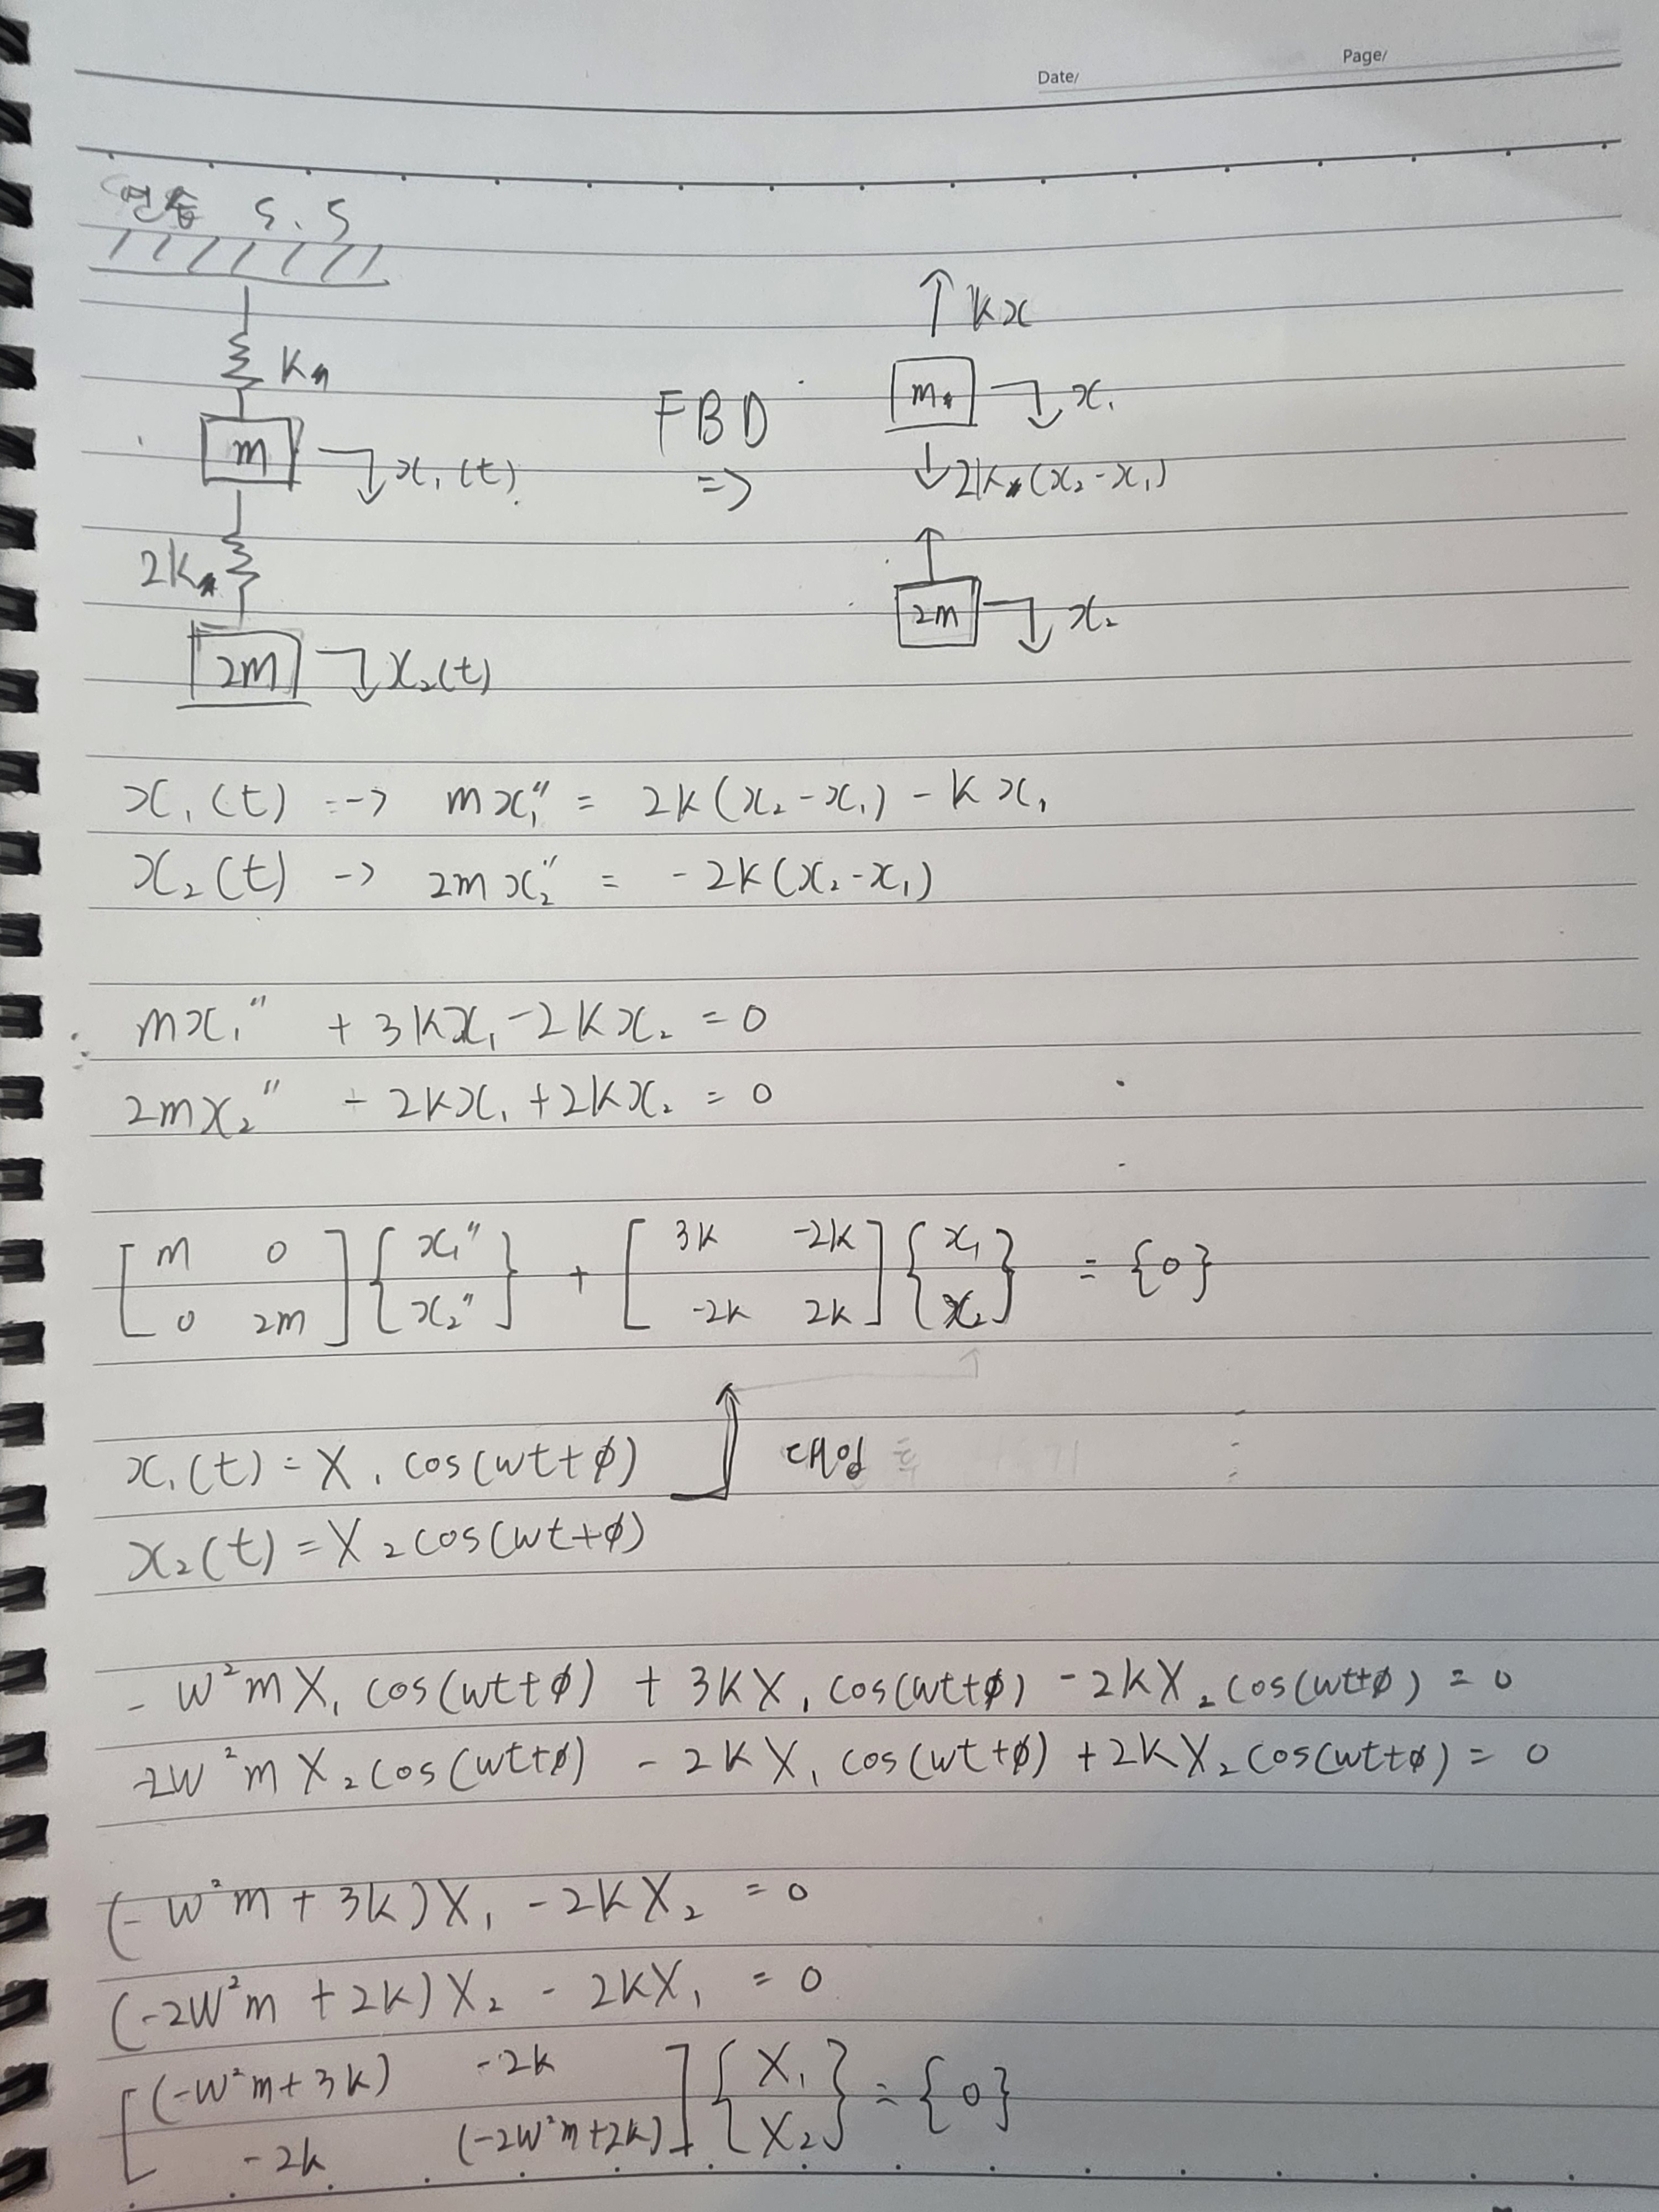 Date/
Page/
연습 5.5
k
m
x₁(t)
2k
2m
x₂(t)
FBD
=>
kx
m
x₁
2k(x₂-x₁)
2m
x₂
x₁(t) => mx₁" = 2k(x₂-x₁) - kx₁
x₂(t) -> 2mx₂" = -2k(x₂-x₁)
mx₁" + 3kx₁ - 2kx₂ = 0
2mx₂" - 2kx₁ + 2kx₂ = 0
[ m 0 ] { x₁" } + [ 3k -2k ] { x₁ } = {0}
[ 0 2m ] { x₂" } [ -2k 2k ] { x₂ }
x₁(t) = X₁ cos(wt+ϕ) 대입
x₂(t) = X₂ cos(wt+ϕ)
-w²mX₁ cos(wt+ϕ) + 3kX₁ cos(wt+ϕ) - 2kX₂ cos(wt+ϕ) = 0
-2w²mX₂ cos(wt+ϕ) - 2kX₁ cos(wt+ϕ) + 2kX₂ cos(wt+ϕ) = 0
(-w²m + 3k)X₁ - 2kX₂ = 0
(-2w²m + 2k)X₂ - 2kX₁ = 0
[ (-w²m+3k) -2k ] { X₁ } = {0}
[ -2k (-2w²m+2k) ] { X₂ }